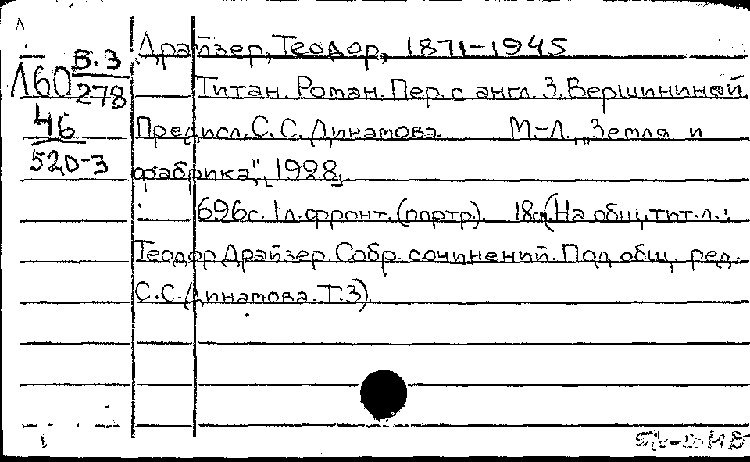 Драйзер, Теодор, 1871-1945
Л60 В.3
278
Титан. Роман. Пер. с англ. З. Вершининой.
46
Предисл. С. С. Динамова. М-Л. „Земля и
520-3
фабрика", [1928].
696с. 1л. фронт. (портр). 18см (На общ. тит. л.:
Теодор Драйзер. Собр. сочинений. Под общ. ред.
С. С. Динамова. Т. 3)